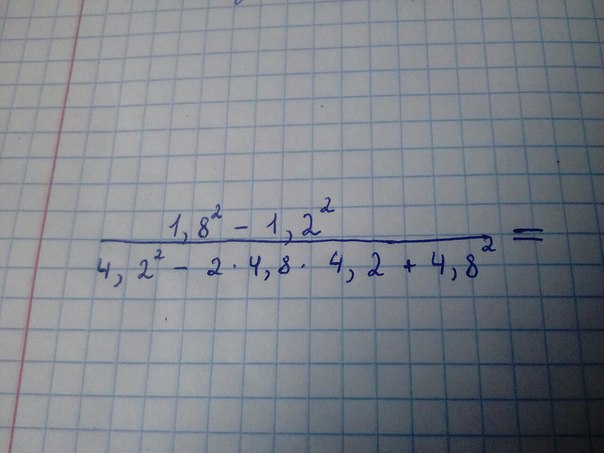 1,8² − 1,2²
4,2² − 2 · 4,8 · 4,2 + 4,8² =